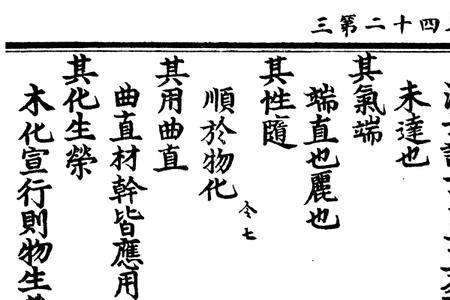 四十二第三
未達也
其氣端
端直也麗也
其性隨
順於物化
令七
其用曲直
曲直材幹皆應用
其化生榮
木化宣行則物生